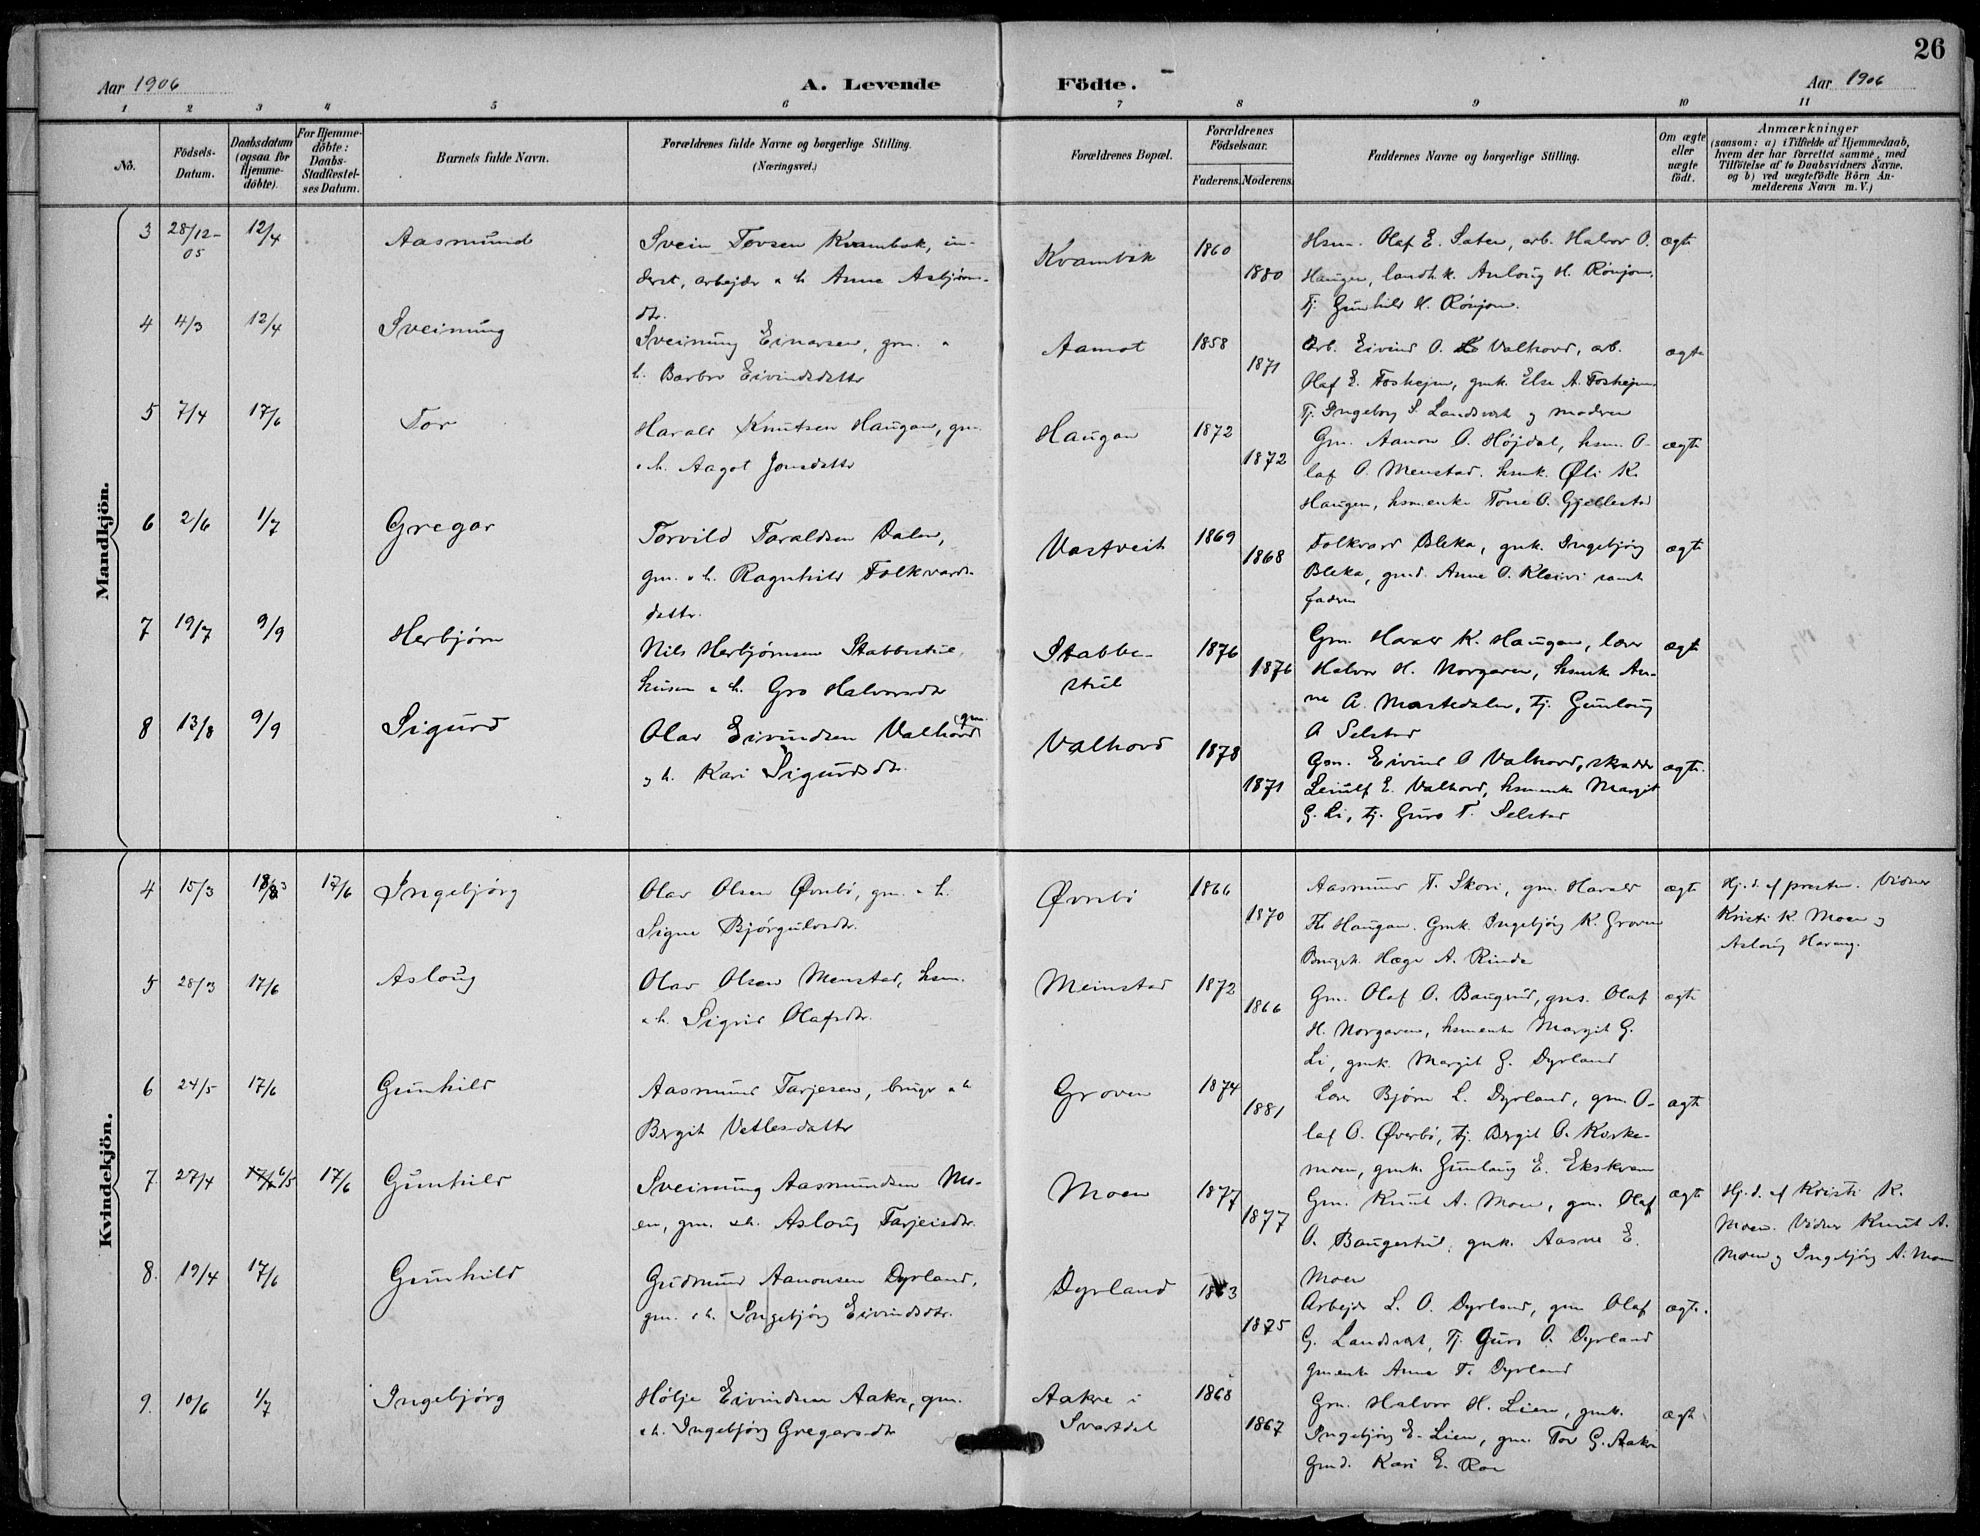 26
Aar 1906 A. Levende Födte. Aar 1906
1 2 3 4 5 6 7 8 9 10 11
No.
Födsels-Datum.
Daabsdatum (ogsaa for Hjemme-döbte).
For Hjemme-döbte: Daabs-Stadfæstel-ses Datum.
Barnets fulde Navn.
Forældrenes fulde Navne og borgerlige Stilling.
(Næringsvei.)
Forældrenes Bopæl.
Forældrenes Födselsaar.
Faderens. Moderens.
Faddernes Navne og borgerlige Stilling.
Om ægte eller uægte födt.
Anmærkninger
(saasom: a) i Tilfælde af Hjemmedaab,
hvem der har forrettet samme, med
Tilföielse af to Daabsvidners Navne,
og b) ved uægtefödte Börn An-
melderens Navn m. V.)
Mandkjön.
3 28/12-05 12/4 Aasmund
Svein Tovsen Kvambæk, in-
derst, arbejder o h Anne Asbjørns-
dtr.
Kvambæk 1860 1880
Hsm. Olaf E. Saten, arb. Halvor O.
Haugen, landh.k. Anlaug H. Rönjom,
Tj. Gunhild H. Rönjom.
ægte
4 4/3 12/4 Sveinung
Sveinung Einarsen, gm. o
h. Barbro Eivindsdatter
Aamot 1858 1871
Arb. Eivind O. Valhovd, arb.
Olaf E. Foshejm, gmk. Else A. Foshejm
Tj. Ingeborg S. Landsverk og moderen
ægte
5 7/4 17/6 Tor
Harald Knutsen Haugan, gm.
o h. Aagot Jonsdatter
Haugan 1872 1872
Gm. Aanon O. Højdal, hsm. O-
laf O. Menstad. hsmk. Øli K.
Haugen, hsmenke Tone O. Gjellestad
ægte
6 2/6 1/7 Gregar
Torvild Taraldsen Dalen,
gm. o h. Ragnhild Folkvards-
datter.
Vastveit 1869 1868
Folkvard Bleka, gmk. Ingebjörg
Bleka, gmd. Anne O. Kleivi samt
faderen
ægte
7 19/7 9/9 Herbjörn
Nils Herbjörnsen Stabbestul,
husm o h. Gro Halvorsdtr
Stabbe-
stul
1876 1876
Gm. Harald K. Haugan, lærer
Halvor H. Norgaren, hsmk An-
ne A. Mastedalen, tj. Gunlaug
A Selstad
ægte
8 13/8 9/9 Sigurd
Olav Eivindsen Valhovd gm.
og h. Kari Sigurdsdtr.
Valhovd 1878 1871
Gm. Eivind O Valhovd, skrædder
Leiulf E. Valhovd, hsmenke Margit
G. Li, tj. Guro T. Selstad
ægte.
Kvindekjön.
4 15/3 18/3 17/6 Ingebjörg
Olav Olsen Øvrebö, gm. o h.
Signe Bjørgulvsdtr.
Øvrebö 1866 1870
Aasmund T. Skori, gm. Harald
K Haugan. Gmk. Ingebjörg K. Groven
Brugerk. Hæge A. Rinde
ægte
Hj. d. af presten. Vidner
Kristi K. Moen og
Aslaug
5 28/3 17/6 Aslaug
Olav Olsen Menstad, hsm.
o h. Sigrid Olafsdtr.
Meinstad 1872 1866
Gm. Olaf O. Baugerud, gms. Olaf
H. Norgaren, hsmenke Margit G.
Li, gmk. Margit G. Dyrland
ægte
6 24/5 17/6 Gunhild
Aasmund Tarjesen, bruger o h
Bergit Vetlesdatter
Groven 1874 1881
Lærer Bjørn L. Dyrland, gm. O-
laf O. Øverbö, tj. Bergit O. Kirke-
moen, gmk. Gunlaug E. Ekskvam
ægte
7. 27/4 6/5 17/6 Gunhild
Sveinung Aasmundsen Mo-
en, gm. o h. Aslaug Tarjeisdtr.
Moen 1877 1877
Gm. Knut A. Moen, gm. Olaf
O. Baugestul, gmk. Aasne E.
Moen
ægte
Hj. d. af Kristi K.
Moen. Vidner Knut A.
Moen og Ingebjörg A. Moen
8. 19/4 17/6 Gunhild
Gudmund Aanonsen Dyrland,
gm. o h. Ingebjörg Eivindsdtr.
Dyrland 1875
Arbejder L. O. Dyrland, gm Olaf
G. Landsverk, Tj. Guro O. Dyrland
gmenke Anne T. Dyrland
ægte.
9. 10/6 1/7 Ingebjörg
Hölje Eivindsen Aakre, gm.
o h. Ingebjörg Gregarsdtr
Aakre i
Svartdal
1868 1867
Gm. Halvor H. Lien, gmk.
Ingebjörg E. Lien, gm. Tov G. Aakre
Gmd. Kari E. Roe
ægte